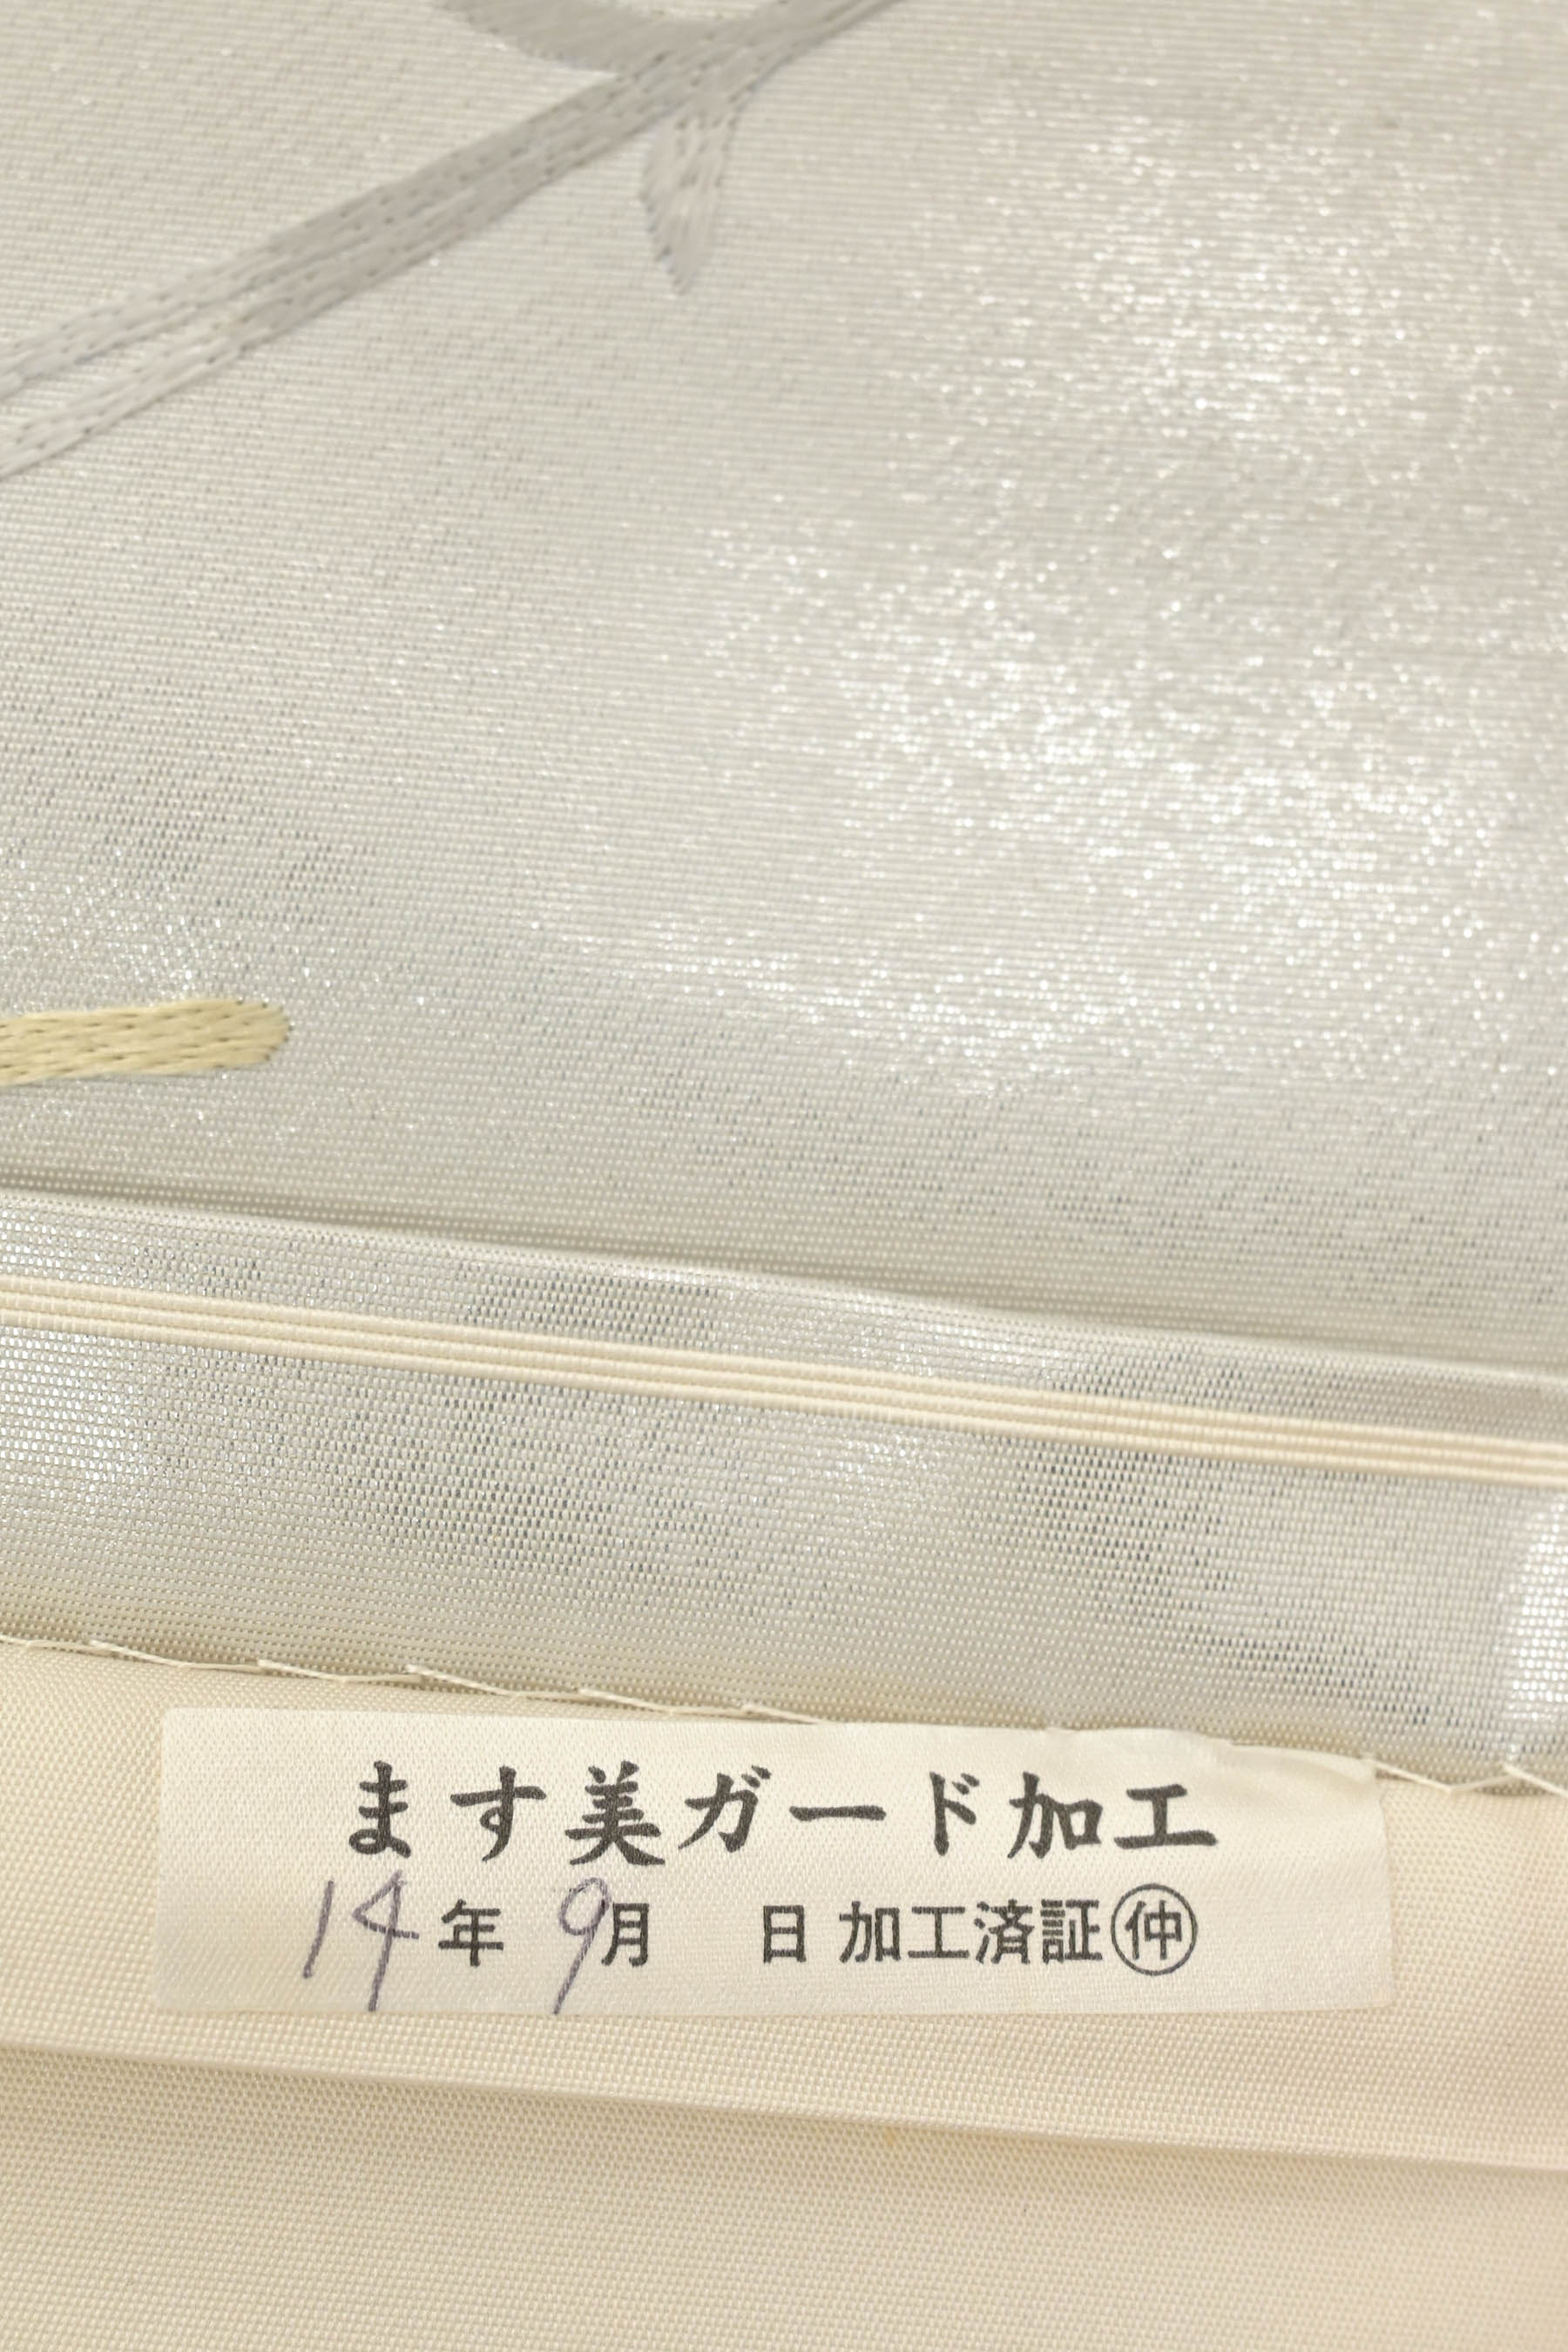 ます美ガード加工
14年 9月 日 加工済証㊥仲